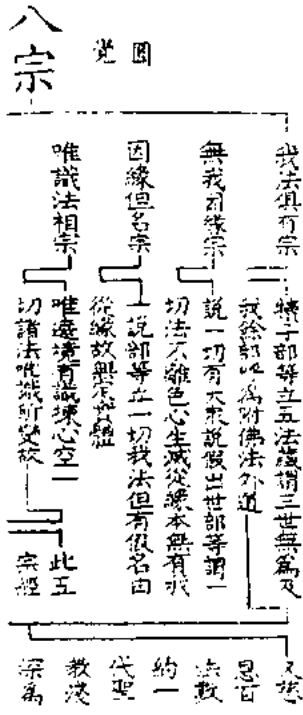 八宗
圓覺
我法俱有宗
犢子部等立五法藏謂三世無為及
我餘部呼為附佛法外道
無我因緣宗
說一切有大衆說假出世部等謂一
切法不離色心生滅從緣本無有我
因緣但名宗
一說部等立一切我法但有假名由
從緣故無實體
唯識法相宗
唯遮境有識揀心空一
切諸法唯識所變故
此五
宗經
法數
約一
代聖
教淺
深為